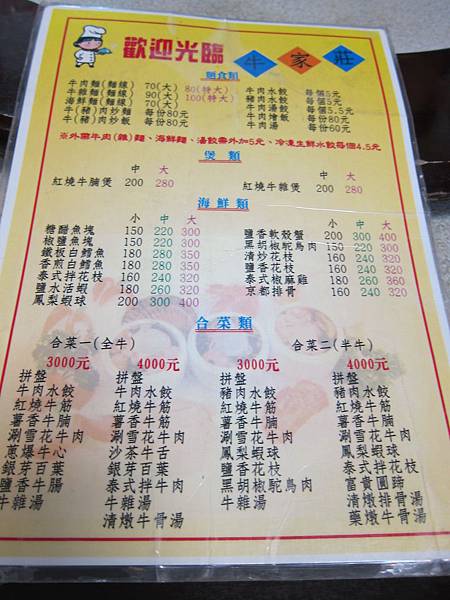 歡迎光臨 牛家莊
麵食類
牛肉麵(麵線) 70(大) 80(特大)
牛雜麵(麵線) 90(大) 100(特大)
海鮮麵(麵線) 70(大)
牛(豬)肉炒麵 每份80元
牛(豬)肉炒飯 每份80元
牛肉水餃 每個5元
豬肉水餃 每個5元
牛肉湯餃 每個5.5元
牛肉燴飯 每份80元
牛肉湯 每份60元
※外帶牛肉(雜)麵、海鮮麵、湯餃需外加5元、冷凍生鮮水餃每個4.5元
煲類
中 大
紅燒牛腩煲 200 280
中 大
紅燒牛雜煲 200 280
海鮮類
小 中 大
糖醋魚塊 150 220 300
椒鹽魚塊 150 220 300
鐵板白鱈魚 180 280 350
香煎白鱈魚 180 280 350
泰式拌花枝 160 240 320
鹽水活蝦 180 260 320
鳳梨蝦球 200 300 400
小 中 大
鹽香軟殼蟹 200 300 400
黑胡椒鴕鳥肉 150 220 300
清炒花枝 160 240 320
鹽香花枝 160 240 320
泰式椒麻雞 180 260 360
京都排骨 160 240 320
合菜類
合菜一(全牛)
3000元
拼盤
牛肉水餃
紅燒牛筋
薯香牛腩
涮雪花牛肉
蔥爆牛心
銀芽牛百葉
鹽香牛腸
牛雜湯
4000元
拼盤
牛肉水餃
紅燒牛筋
薯香牛腩
涮雪花牛肉
沙茶牛舌
銀芽牛百葉
泰式拌牛肉
牛雜湯
清燉牛骨湯
合菜二(半牛)
3000元
拼盤
豬肉水餃
紅燒牛筋
薯香牛腩
涮雪花牛肉
鳳梨蝦球
鹽香花枝
黑胡椒鴕鳥肉
牛雜湯
4000元
拼盤
豬肉水餃
紅燒牛筋
薯香牛腩
涮雪花牛肉
鳳梨蝦球
泰式拌花枝
富貴圓蹄
清燉排骨湯
藥燉牛骨湯